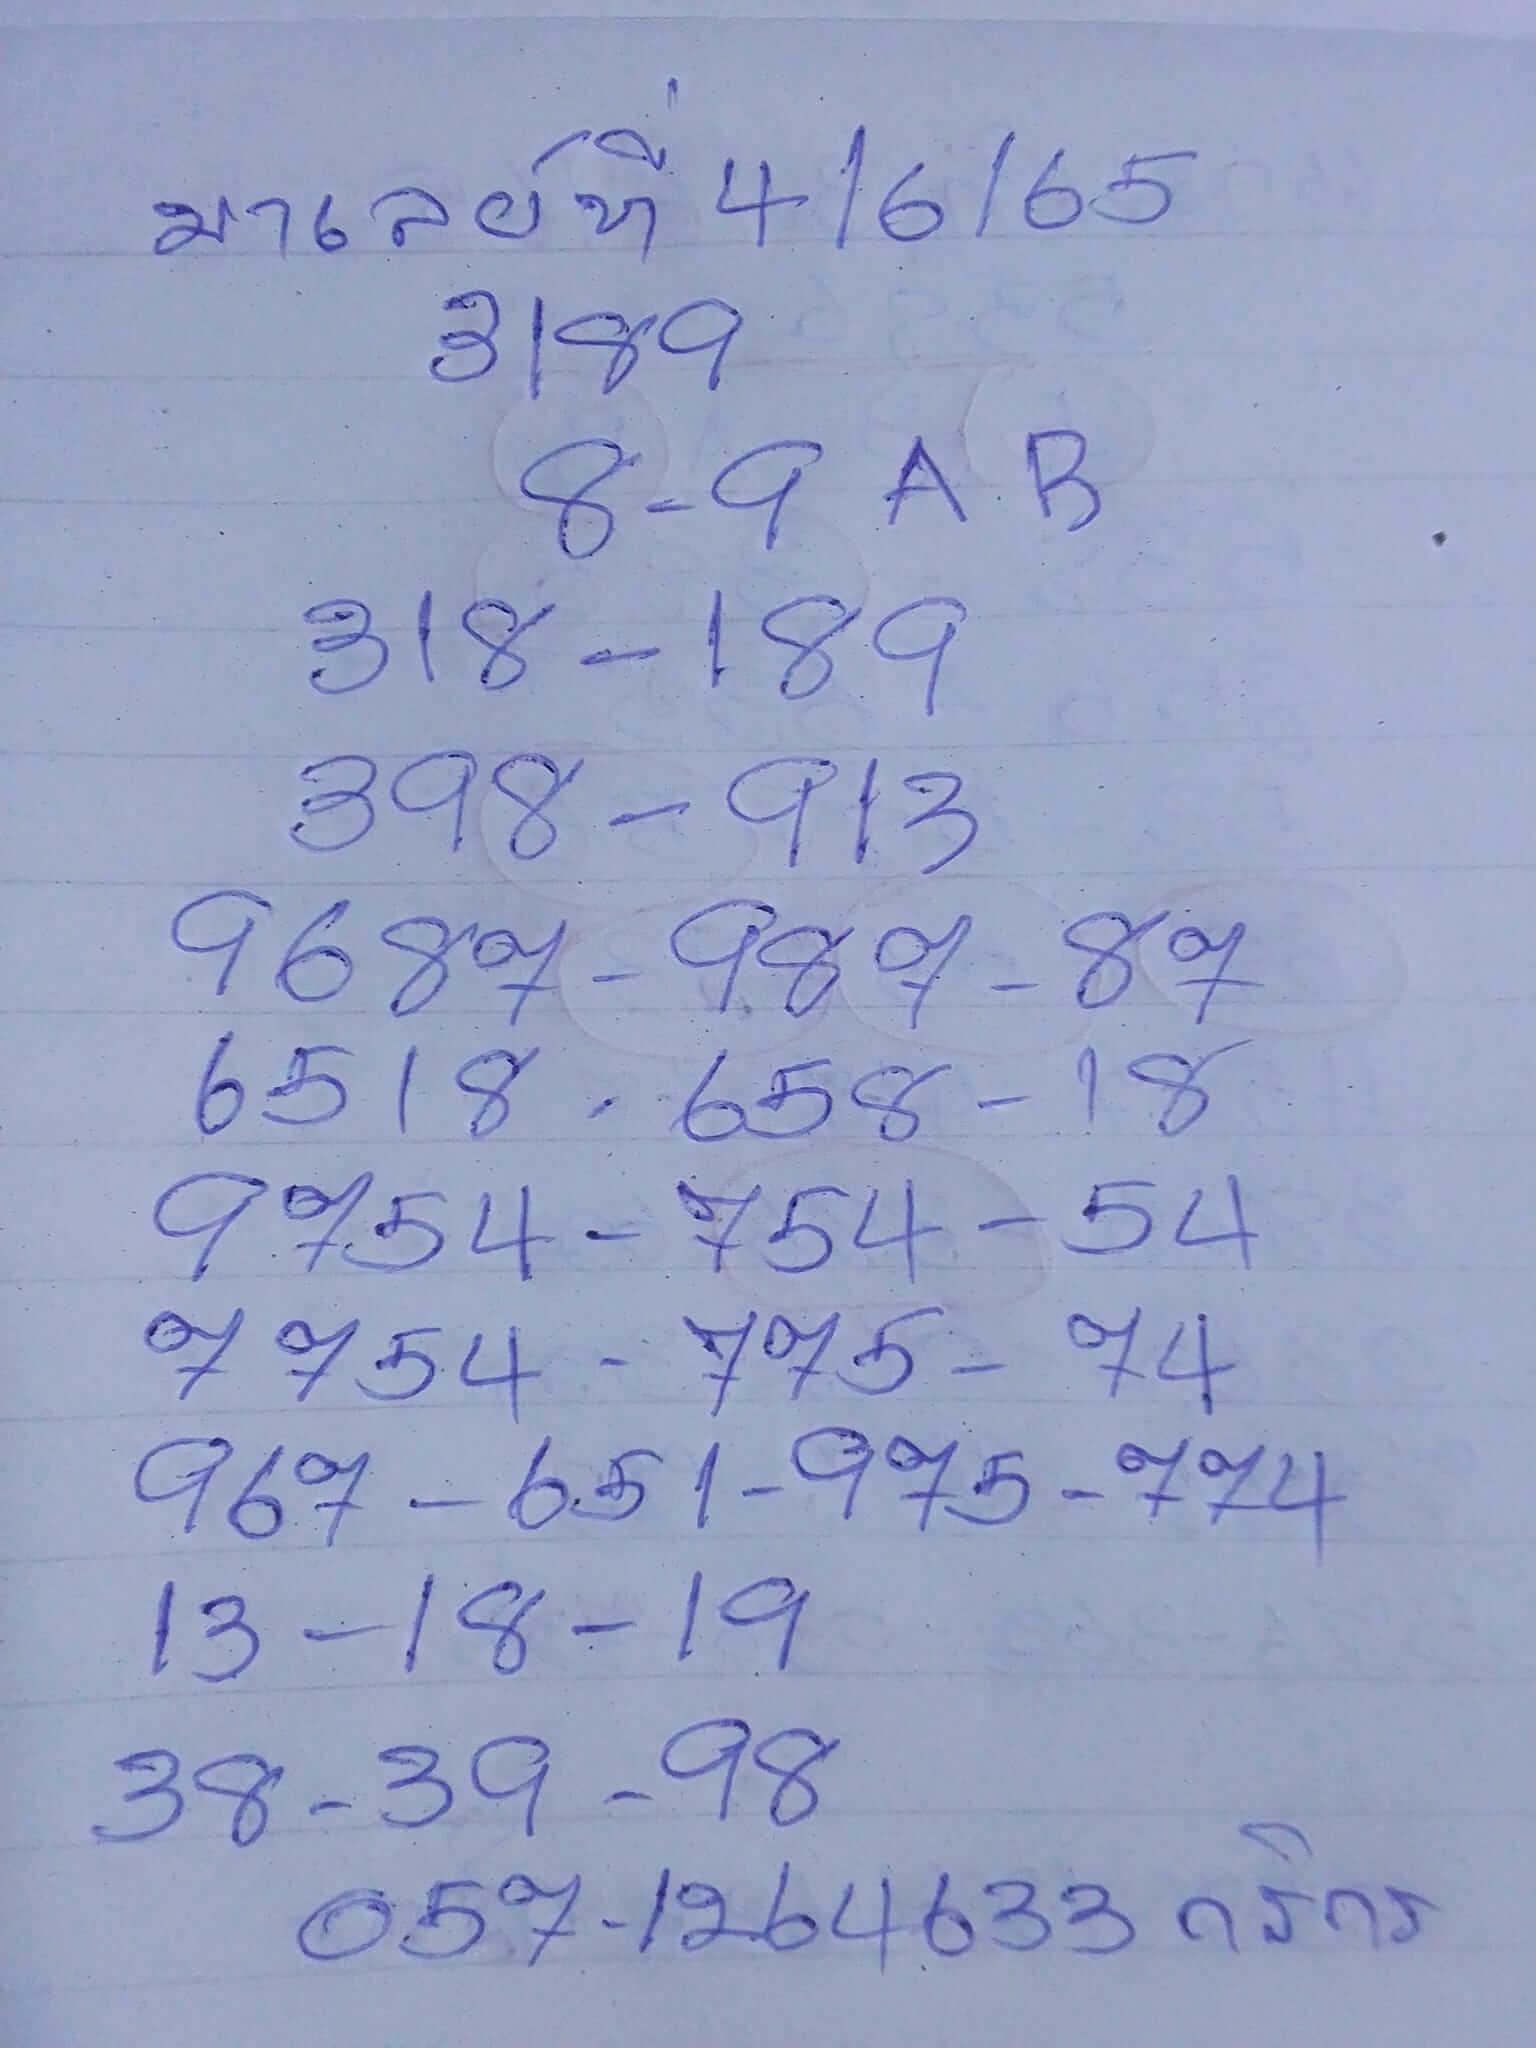 มาเลย์ที่ 4/6/65
3189
8-9 A B
318-189
398-913
9687-987-87
6518.658-18
9754-754-54
7754-775-74
967-651-975-774
13-18-19
38-39-98
057-1264633